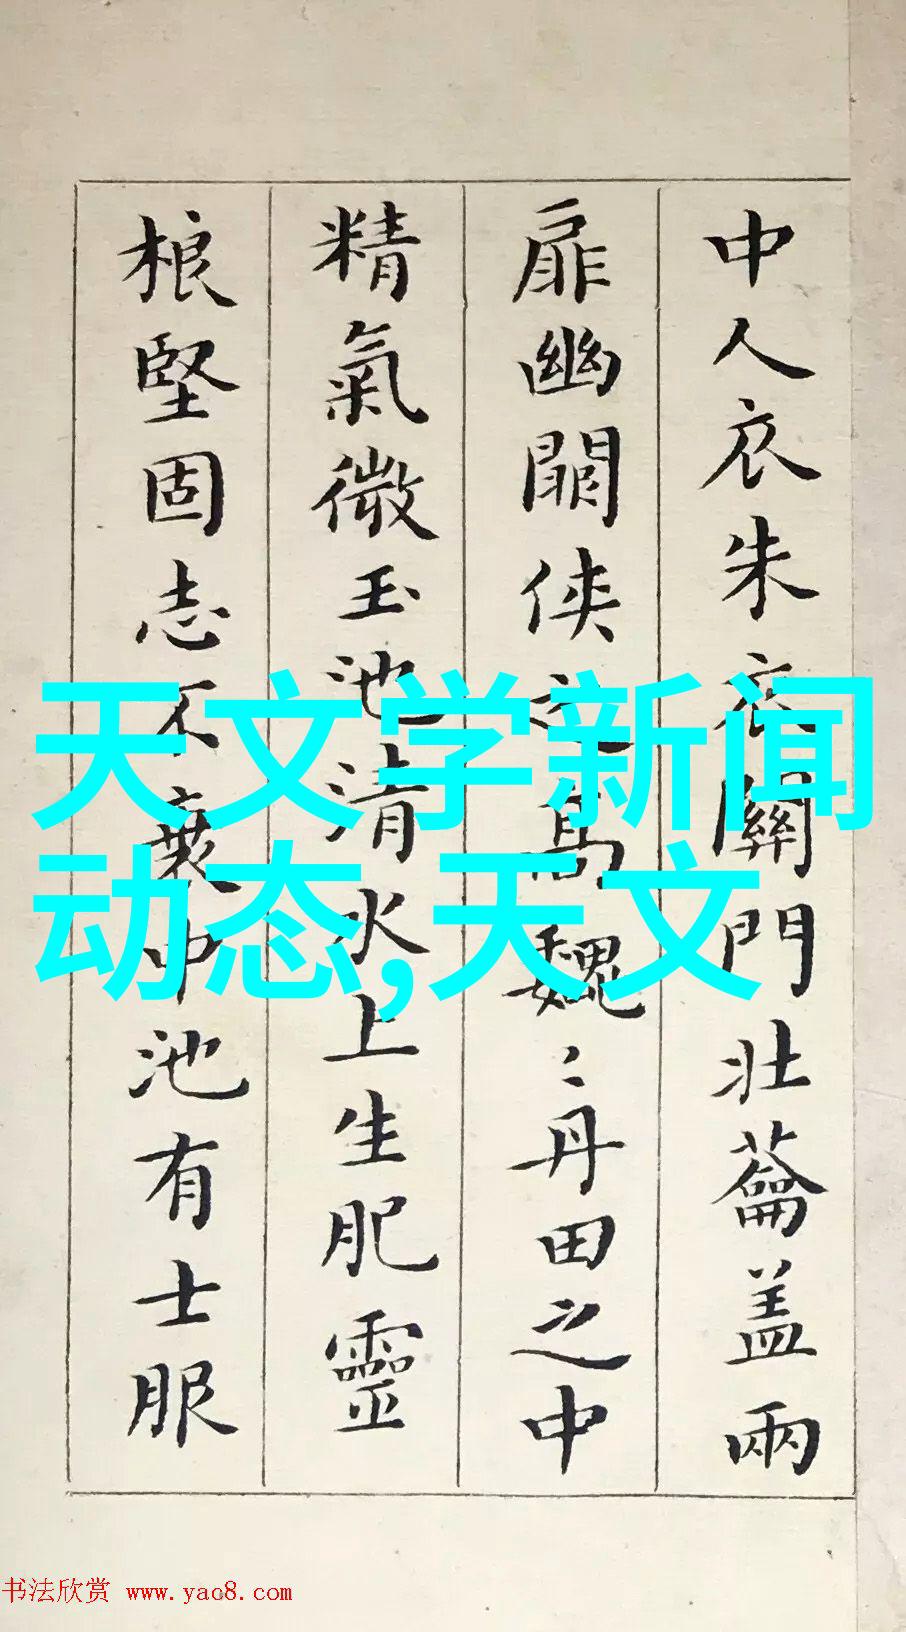 中人衣朱衣關門壯蘥盖兩
扉幽闗侠之髙魏〻丹田之中
精氣微玉池清水上生肥靈
根堅固志不衰中池有士服
天文学新闻
动态,天文
书法欣赏 www.yac8.com